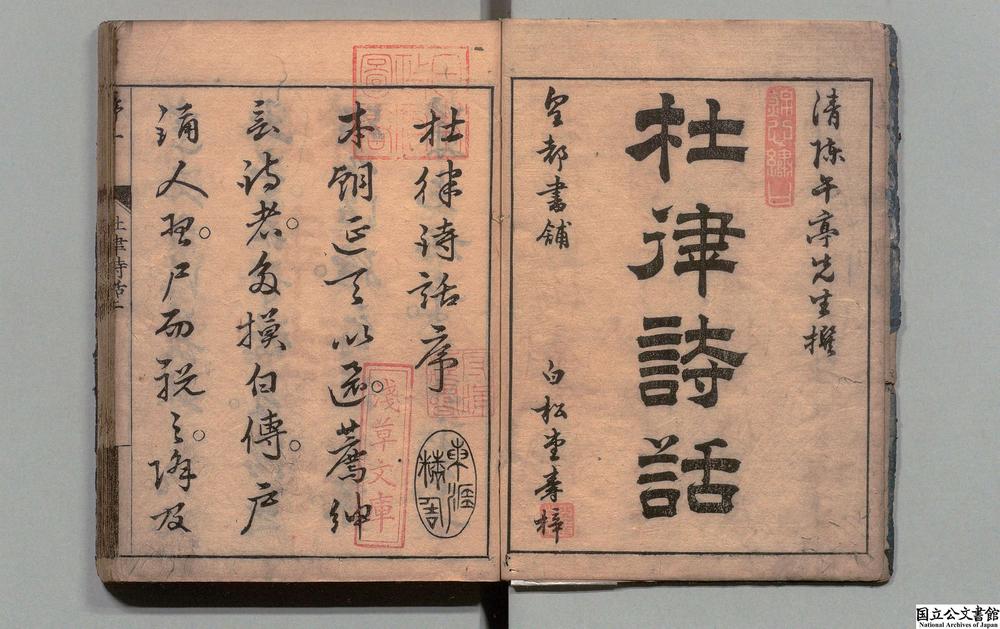 清陳午亭先生撰
杜律詩話
皇都書舖 白松堂壽梓
杜律詩話序
本朝延天以還。薦紳
言詩者。多摸白傳。戸
誦人習。尸而祝之。降及
淺草文庫
杜律詩話
国立公文書館
National Archives of Japan